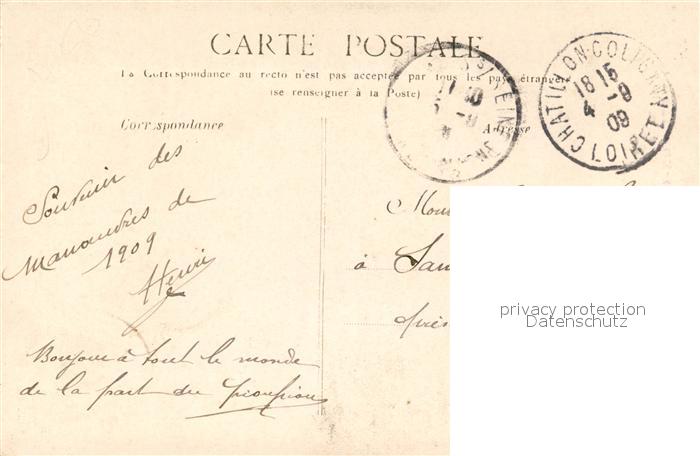 CARTE POSTALE
La Correspondance au recto n'est pas acceptée par tous les pays étrangers
(se renseigner à la Poste)
Correspondance
Adresse
CHATILLON-COLIGNY
18 15
4 -9
09
LOIRET
Souvenir des
Manoeuvres de
1909
Henri
Bonjour à tout le monde
de la part du pioupiou
à
près
privacy protection
Datenschutz